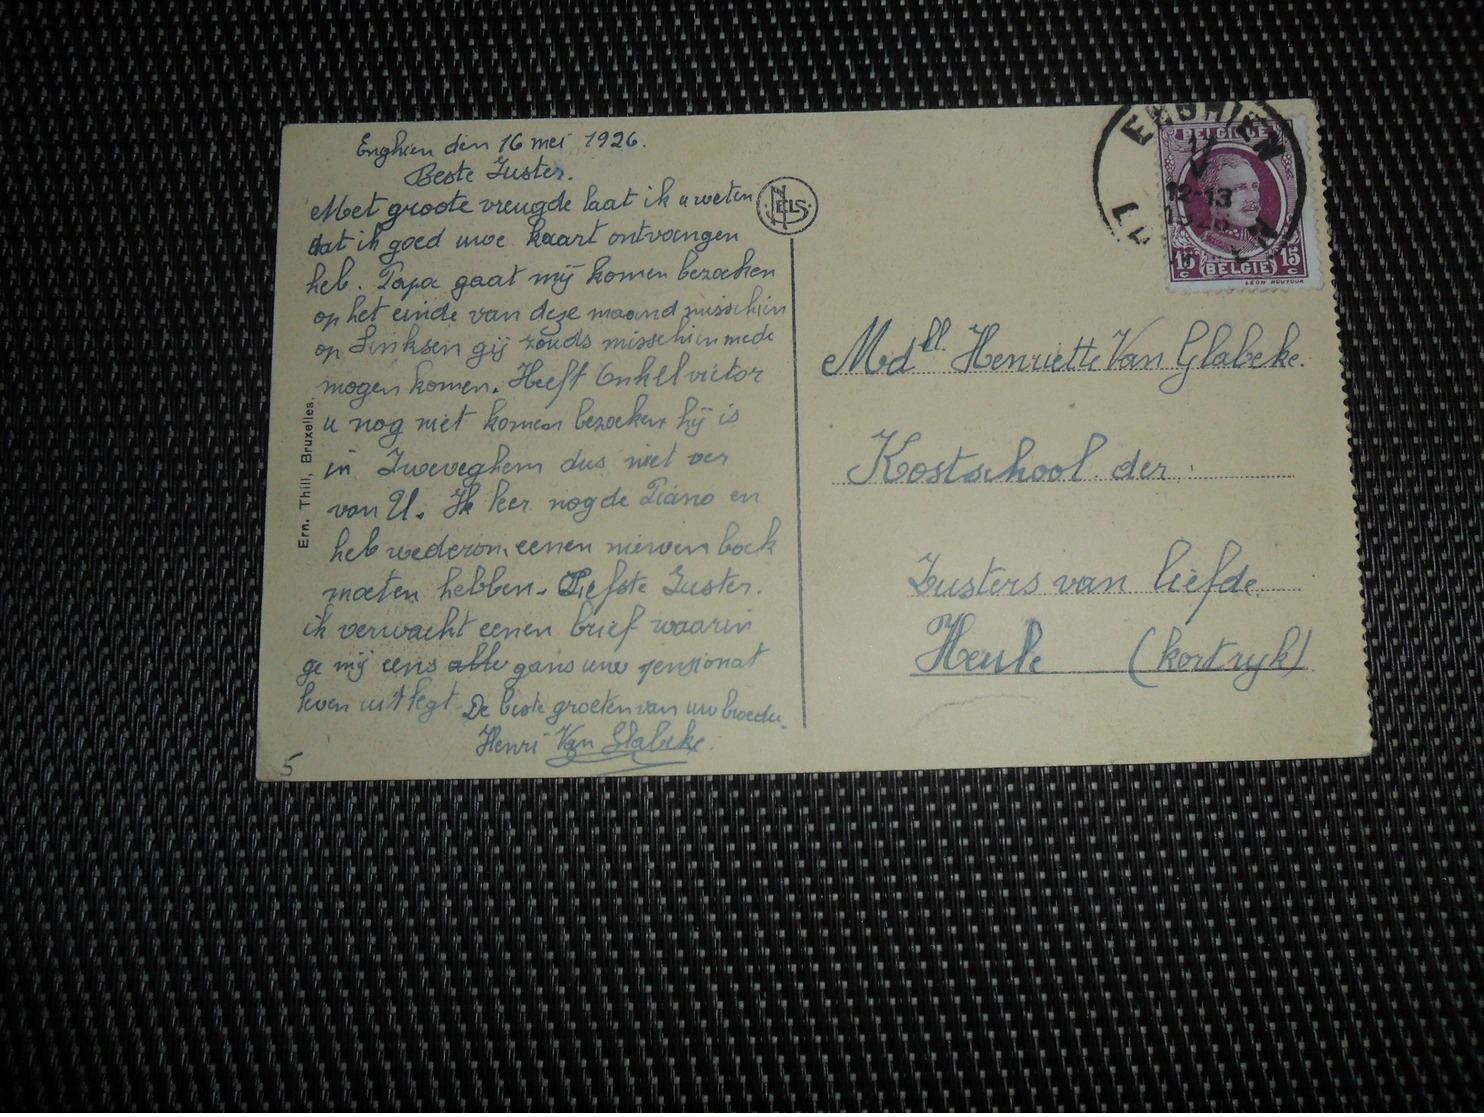 Enghien den 16 mei 1926.
Beste Zuster.
Met groote vreugde laat ik u weten
dat ik goed uwe kaart ontvangen
heb. Papa gaat mij komen bezoeken
op het einde van deze maand misschien
op Sinksen gij zouds misschien mede
mogen komen. Heeft Onkel victor
u nog niet komen bezoeken hij is
in Zweveghem dus niet ver
van U. Ik leer nog de Piano en
heb wederom eenen nieuwen boek
moeten hebben. Liefste Zuster.
ik verwacht eenen brief waarin
ge mij eens alle gans uw pensionat
leven uitlegt. De beste groeten van uw broeder.
Henri Van Glabeke.
5
Ern. Thill, Bruxelles.
NELS
ENGHIEN
17
V
12-13
1926
BELGIQUE
15 c BELGIË 15 c
LEON HOUYOUX
Mdell. Henriette Van Glabeke.
Kostschool der
Zusters van liefde.
Heule (kortryk)